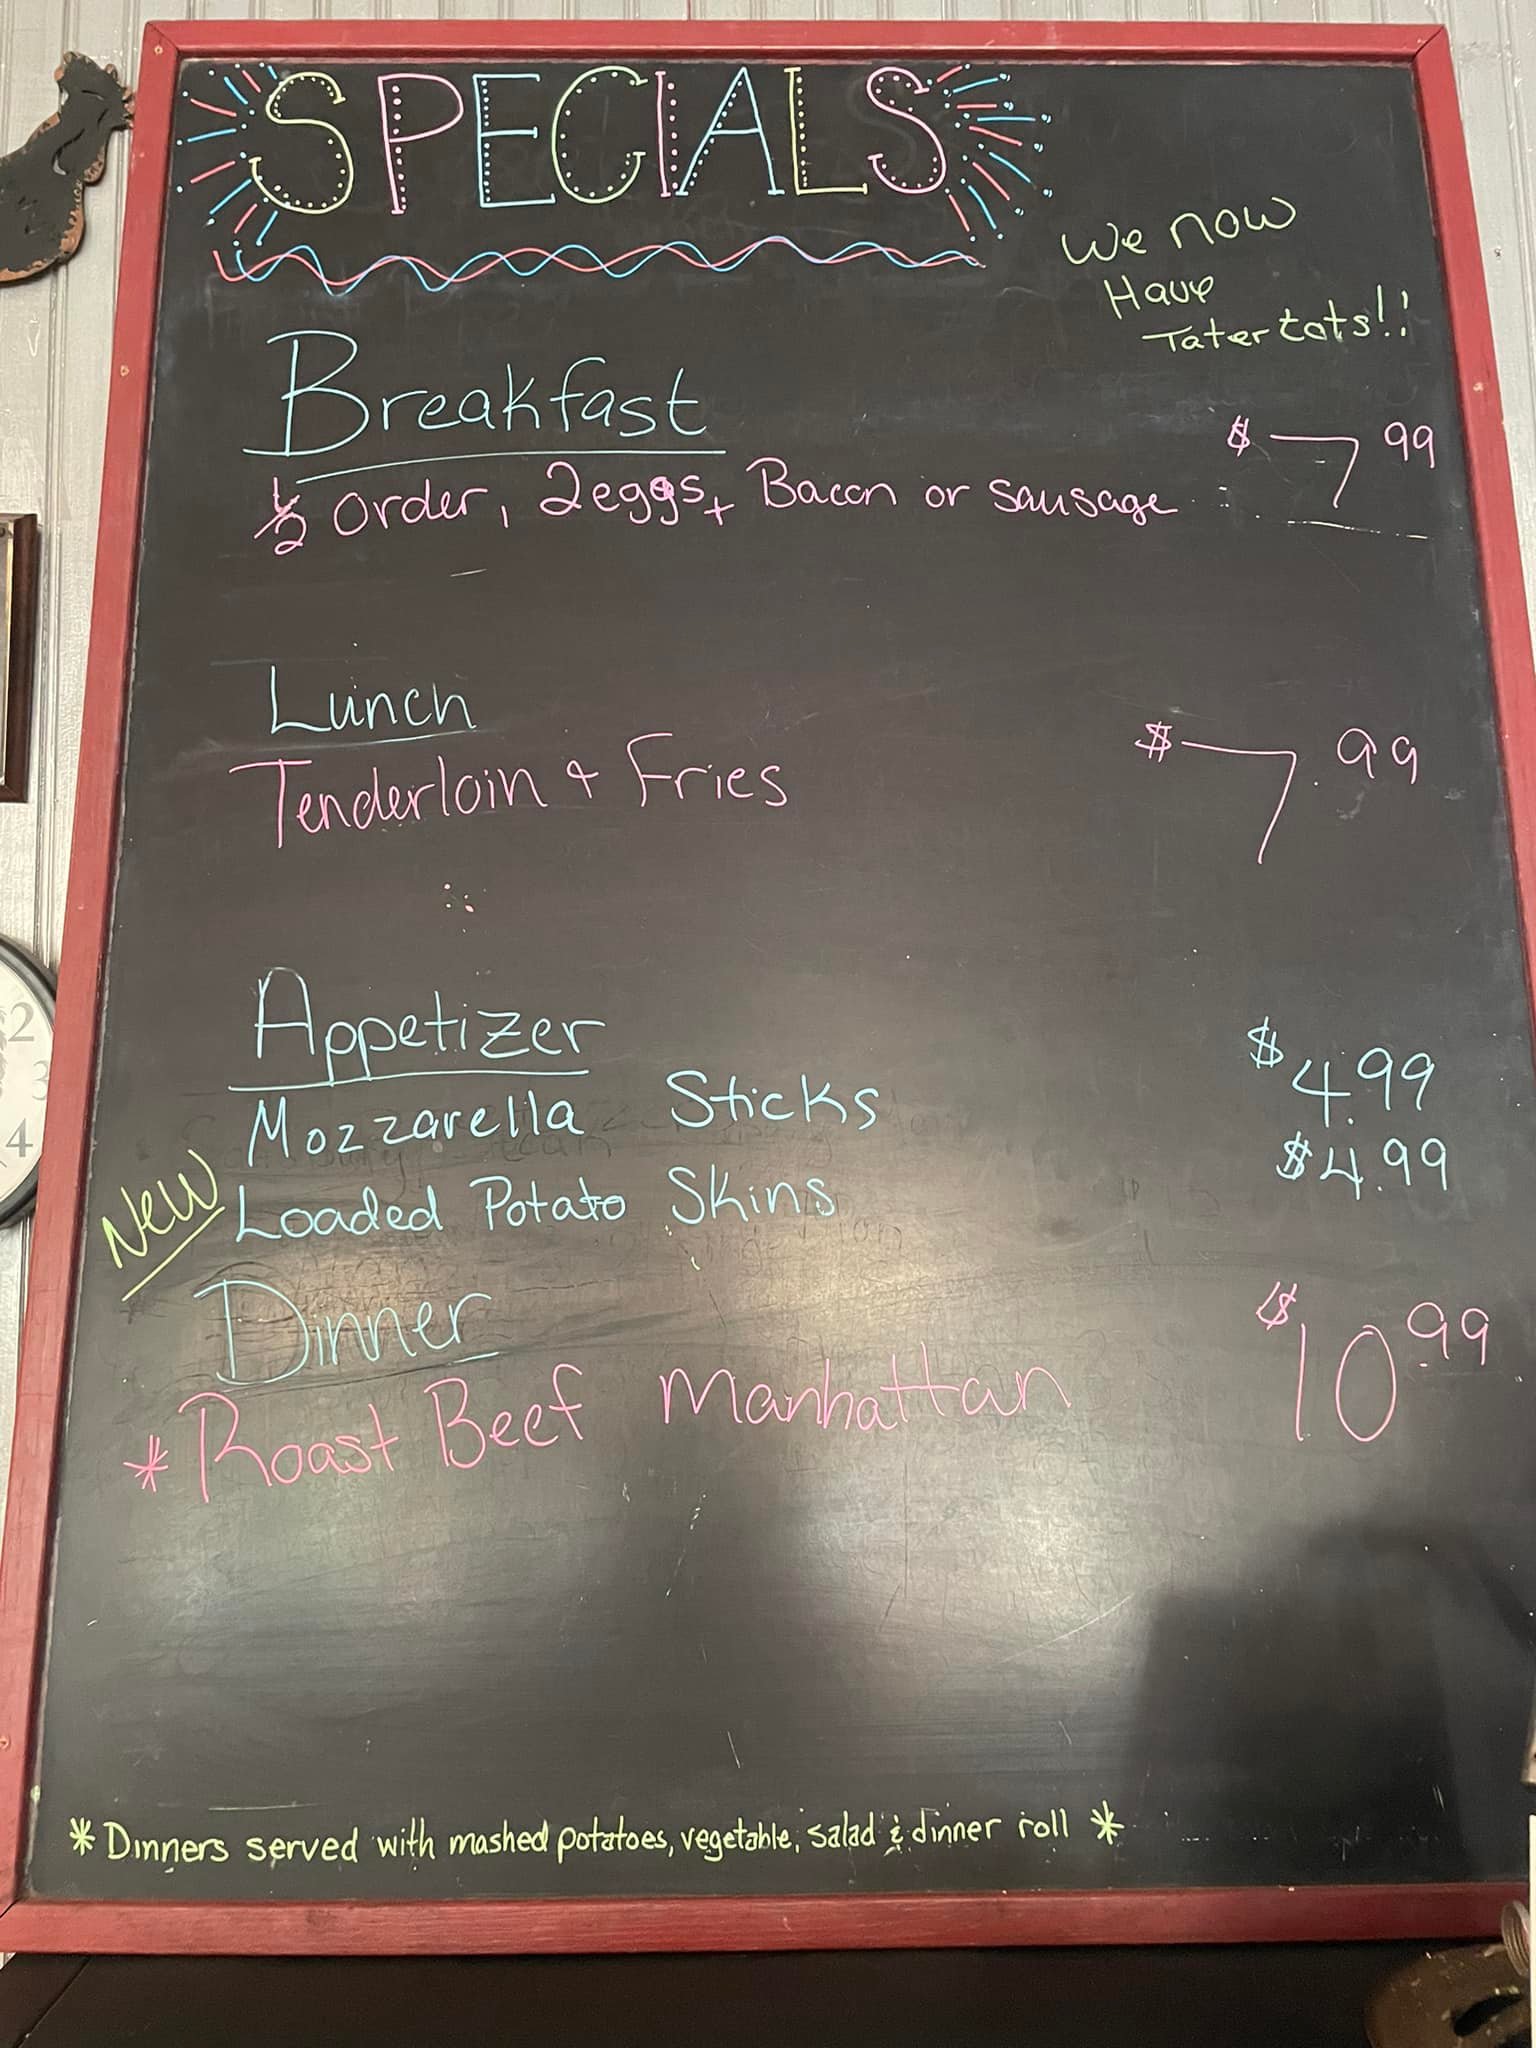 SPECIALS
We now
Have
Tater tots!!
Breakfast
1/2 order, 2 eggs, + Bacon or sausage $7 99
Lunch
Tenderloin + Fries $7.99
Appetizer
Mozzarella Sticks $4.99
NEW Loaded Potato Skins $4.99
Dinner
* Roast Beef Manhattan $10 99
* Dinners served with mashed potatoes, vegetable, salad & dinner roll *
2
3
4